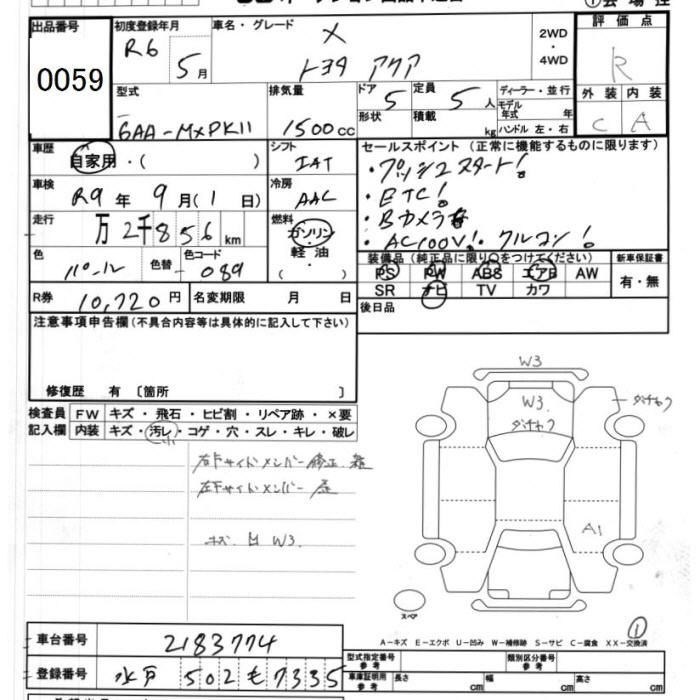 出品番号
0059
初度登録年月
R6
5月
車名・グレード
X
トヨタ アクア
2WD
・
4WD
評価点
R
外装 内装
C A
型式
6AA-MXPK11
排気量
1500cc
ドア
5
定員
5人
形状
積載
kg
ディーラー・並行
モデル
年式 年
ハンドル 左・右
車歴
自家用・( )
シフト
IAT
車検
R9年9月(1日)
冷房
AAC
走行
万2千856km
燃料
ガソリン
・
軽油
色
パール
色替
色コード
089
R券
10,720円
名変期限 月 日
セールスポイント(正常に機能するものに限ります)
・プッシュスタート!
・ETC!
・Bカメラ
・AC100V!・クルコン!
装備品(純正品に限り○をつけてください)
PS PW ABS エアB AW
SR ナビ TV カワ
新車保証書
有・無
後日品
注意事項申告欄(不具合内容等は具体的に記入して下さい)
修復歴 有〔箇所 〕
検査員
記入欄
FW キズ・飛石・ヒビ割・リペア跡・×要
内装 キズ・汚レ・コゲ・穴・スレ・キレ・破レ
右下サイドメンバー 修正
左下サイドメンバー
キズ 凹 W3
W3
W3
ダチャク
ダチャク
A1
スペア
①
A-キズ E-エクボ U-凹み W-補修跡 S-サビ C-腐食 XX-交換済
車台番号
2183774
登録番号
水戸 502 も 7335
型式指定番号
参考
類別区分番号
参考
車庫証明用
参考
長さ cm
幅 cm
高さ cm